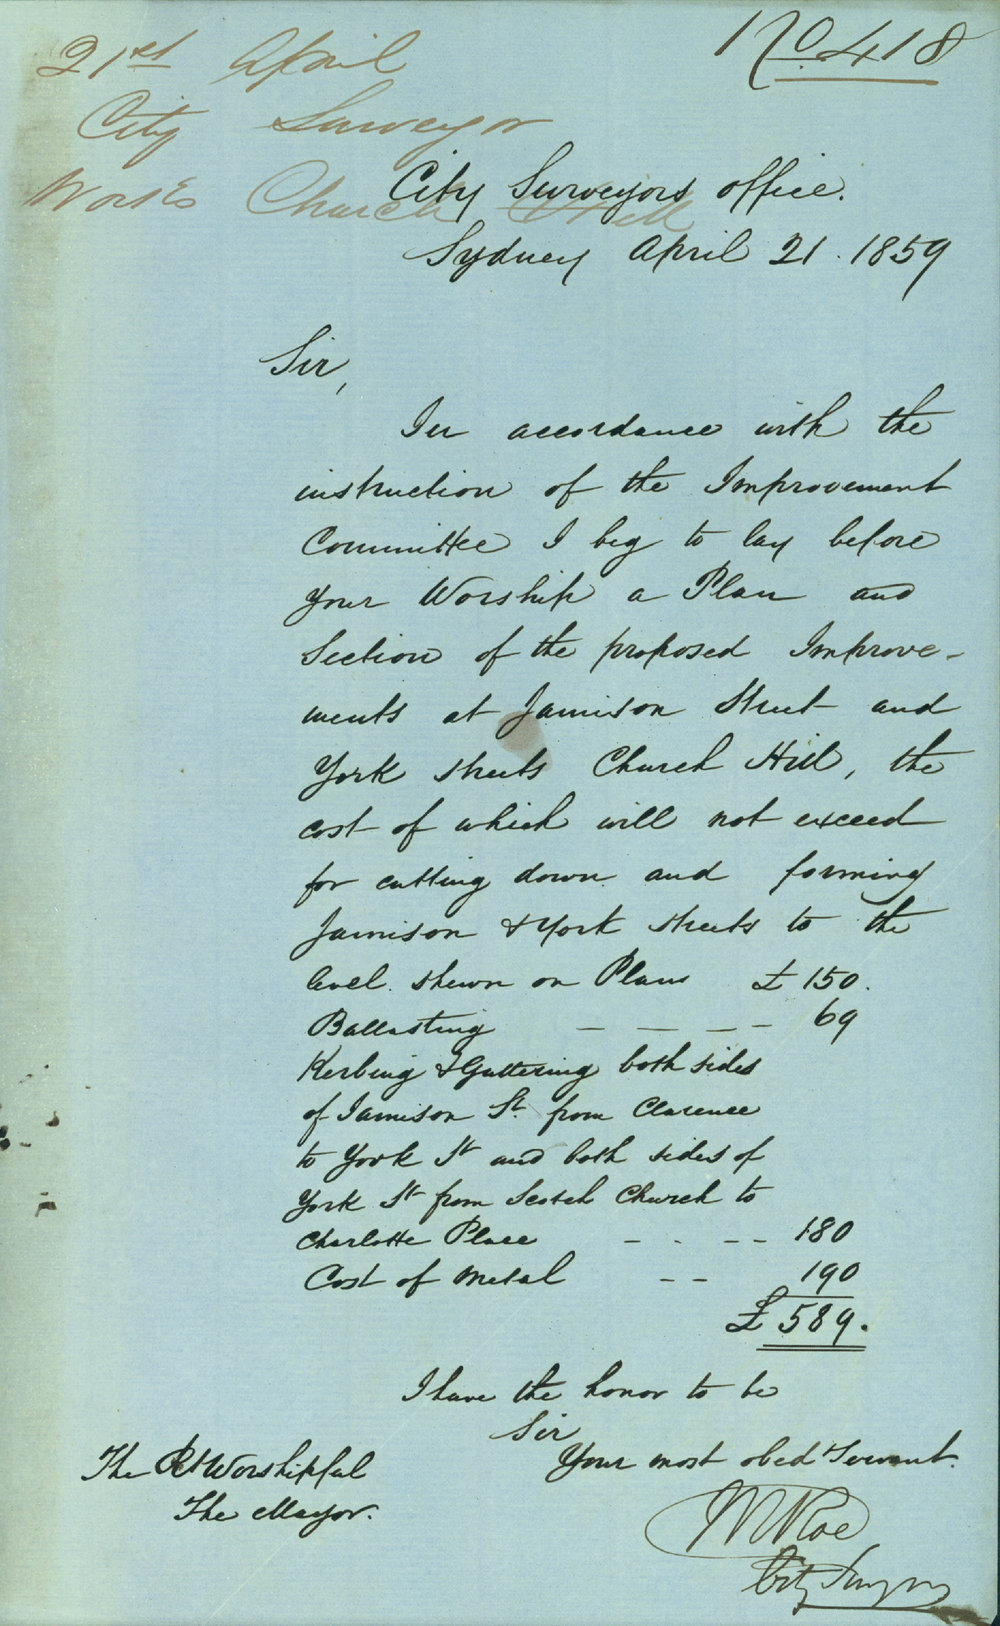 No. 418
21st April
City Surveyor
Works Church Hill
City Surveyors office.
Sydney April 21. 1859
Sir,
In accordance with the
instruction of the Improvement
Committee I beg to lay before
your Worship a Plan and
Section of the proposed Improve-
ments at Jamison Street and
York streets Church Hill, the
cost of which will not exceed
for cutting down and forming
Jamison & York streets to the
level shewn on Plans £ 150.
Ballasting — — — — 69
Kerbing & Guttering both sides
of Jamison St. from Clarence
to York St and both sides of
York St from Scotch Church to
Charlotte Place — - — — 180
Cost of Metal — — 190
£ 589.
I have the honor to be
Sir
Your most obed Servant.
The Rt Worshipful
The Mayor.
W Roe
City Surveyor